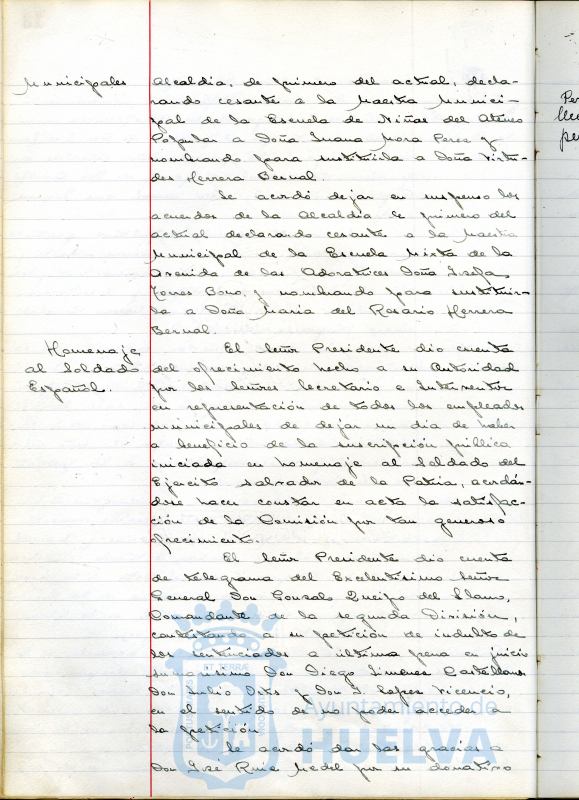 Municipales
Alcaldia, de primero del actual, decla-
rando cesante a la Maestra Munici-
pal de la Escuela de Niñas del Ateneo
Popular a Doña Juana Mora Perez y
nombrando para sustituirla a Doña Virtu-
des Herrera Bernal.
Se acordó dejar en suspenso los
acuerdos de la Alcaldia de primero del
actual declarando cesante a la Maestra
Municipal de la Escuela Mixta de la
Avenida de las Adoratrices Doña Josefa
Torres Bono, y nombrando para sustituir-
la a Doña Maria del Rosario Herrera
Bernal.
Homenaje
al Soldado
Español.
El Señor Presidente dio cuenta
del ofrecimiento hecho a su Autoridad
por los Señores Secretario e Interventor
en representación de todos los empleados
municipales de dejar un dia de haber
a beneficio de la suscripción pública
iniciada en homenaje al Soldado del
Ejercito salvador de la Patria, acordán-
dose hacer constar en acta la satisfac-
ción de la Comisión por tan generoso
ofrecimiento.
El Señor Presidente dio cuenta
de telegrama del Excelentisimo Señor
General Don Gonzalo Queipo del Llano,
Comandante de la segunda División,
contestando a su petición de indulto de
los sentenciados a última pena en juicio
sumarisimo Don Diego Jimenez Castellano
Don Julio Orts y Don L. Lopez Vicencio,
en el sentido de no poder acceder a
la petición.
Se acordó dar las gracias a
Don José Ruiz Medel por su donativo
Per
pe
Ayuntamiento de
HUELVA